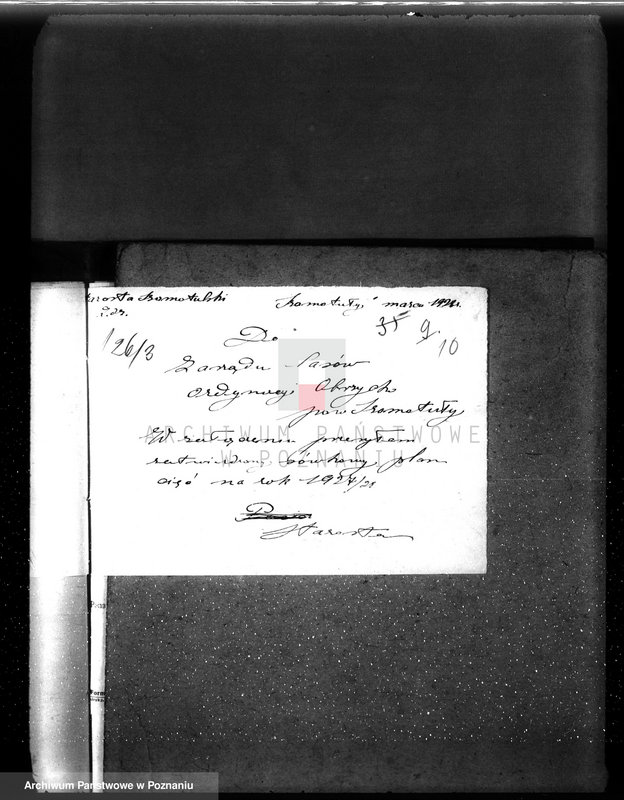 Starosta Szamotulski
Szamotuły, marzec 1928.
L.dz.
35 9.
126/3
10
Do
Zarządu Lasów
Ordynacji Obrzycko
pow Szamotuły
W załączeniu przesyłam
zatwierdzony plan
cięć na rok 1927/28
Starosta
ARCHIWUM PAŃSTWOWE
W POZNANIU
Archiwum Państwowe w Poznaniu